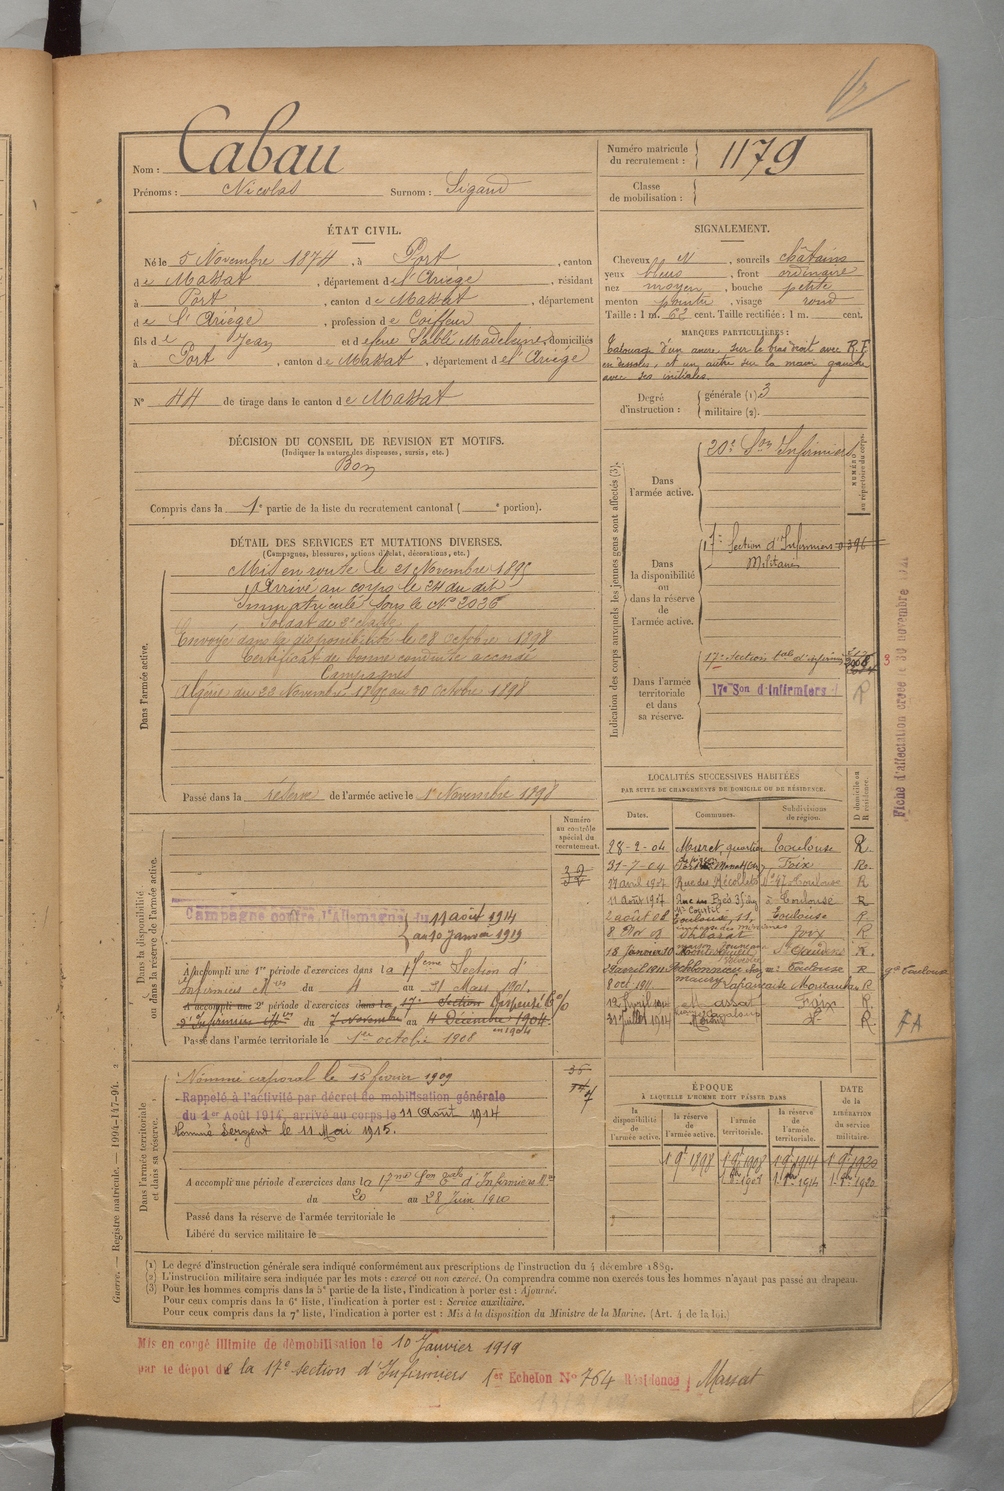 Nom : Cabau
Prénoms : Nicolas Surnom : Sigaud
Numéro matricule du recrutement : 1179
Classe de mobilisation :
ÉTAT CIVIL.
Né le 5 Novembre 1874, à Port, canton
de Massat, département de l'Ariège, résidant
à Port, canton de Massat, département
de l'Ariège, profession de Coiffeur
fils de Jean et de feue Sablé Madeleine, domiciliés
à Port, canton de Massat, département de l'Ariège
N° 44 de tirage dans le canton de Massat
SIGNALEMENT.
Cheveux N, sourcils châtains
yeux bleus, front ordinaire
nez moyen, bouche petite
menton pointu, visage rond
Taille : 1 m. 62 cent. Taille rectifiée : 1 m. cent.
MARQUES PARTICULIÈRES :
Tatouage d'un ancre, sur le bras droit avec R.F.
en dessous, et un autre sur la main gauche
avec ses initiales.
Degré d'instruction : générale (1) 3
militaire (2).
DÉCISION DU CONSEIL DE REVISION ET MOTIFS.
(Indiquer la nature des dispenses, sursis, etc.)
Bon
Compris dans la 1e partie de la liste du recrutement cantonal ( e portion).
DÉTAIL DES SERVICES ET MUTATIONS DIVERSES.
(Campagnes, blessures, actions d'éclat, décorations, etc.)
Dans l'armée active.
Mis en route le 21 Novembre 1895
Arrivé au corps le 24 du dit
Immatriculé sous le N° 2026
Soldat de 2e classe
Envoyé dans la disponibilité le 28 Octobre 1898
Certificat de bonne conduite accordé
Campagnes
Algérie du 22 Novembre 1895 au 30 Octobre 1898
Passé dans la réserve de l'armée active le 1er Novembre 1898
Indication des corps auxquels les jeunes gens sont affectés (3).
NUMÉRO au répertoire du corps.
Dans l'armée active.
20e Son Infirmiers
Dans la disponibilité ou dans la réserve de l'armée active.
17e Section d'Infirmiers 0396
Militaires
Dans l'armée territoriale et dans sa réserve.
17e Section tale d'infirmiers
17e Son d'Infirmiers
R
Fiche d'affectation créée le 30 novembre
Dans la disponibilité ou dans la réserve de l'armée active.
Numéro au contrôle spécial du recrutement.
Campagne contre l'Allemagne du 11 août 1914
au 10 Janvier 1919
A accompli une 1re période d'exercices dans la 17eme Section d'
Infirmiers Mres du 4 au 31 Mars 1901
A accompli une 2e période d'exercices dans la 17e Section Dispensé
d'Infirmiers Mres du 7 Novembre au 4 Décembre 1904
en 1904
Passé dans l'armée territoriale le 1er octobre 1908
Dans l'armée territoriale et dans sa réserve.
Nommé caporal le 15 février 1909
Rappelé à l'activité par décret de mobilisation générale
du 1er Août 1914, arrivé au corps le 11 Août 1914
Nommé Sergent le 11 Mai 1915.
A accompli une période d'exercices dans la 17me Son tale d'Infirmiers Mres
du 20 au 28 Juin 1910
Passé dans la réserve de l'armée territoriale le
Libéré du service militaire le
LOCALITÉS SUCCESSIVES HABITÉES
PAR SUITE DE CHANGEMENTS DE DOMICILE OU DE RÉSIDENCE.
Dates. Communes. Subdivisions de région. D domicile ou R résidence.
28-2-04 Muret, quartier Toulouse R.
31-7-04 Foix R.
17 avril 1907 Rue des Récollets N° 47 Toulouse R
11 Août 1907 à Toulouse R
2 août 08 Toulouse, 11, Toulouse R
Foix R
18 Janvier 10 St Gaudens R.
Toulouse R
8 oct 1911 Lafrançaise Montauban R
Massat Foix R
31 Juillet 1914 R
FA
ÉPOQUE
À LAQUELLE L'HOMME DOIT PASSER DANS
la disponibilité de l'armée active. la réserve de l'armée active. l'armée territoriale. la réserve de l'armée territoriale. DATE de la LIBÉRATION du service militaire.
1 9bre 1898 1 9bre 1908 1 9bre 1914 1 9bre 1920
1 8bre 1908 1 8bre 1914 1 8bre 1920
Guerre. — Registre matricule. — 1994-147-94.
(1) Le degré d'instruction générale sera indiqué conformément aux prescriptions de l'instruction du 4 décembre 1889.
(2) L'instruction militaire sera indiquée par les mots : exercé ou non exercé. On comprendra comme non exercés tous les hommes n'ayant pas passé au drapeau.
(3) Pour les hommes compris dans la 5e partie de la liste, l'indication à porter est : Ajourné.
Pour ceux compris dans la 6e liste, l'indication à porter est : Service auxiliaire.
Pour ceux compris dans la 7e liste, l'indication à porter est : Mis à la disposition du Ministre de la Marine. (Art. 4 de la loi.)
Mis en congé illimité de démobilisation le 10 Janvier 1919
par le dépôt de la 17e section d'Infirmiers 1er Echelon No 764 Résidence : Massat